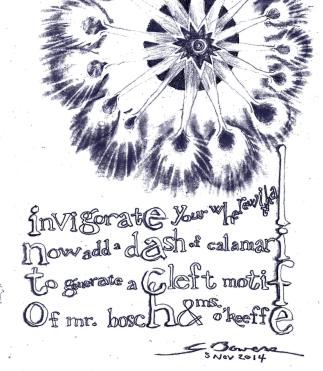 invigorate your wherewithal
now add a dash of calamari
to generate a cleft motif
of mr. bosch & ms. o'keeffe
S Bowers
5 Nov 2014